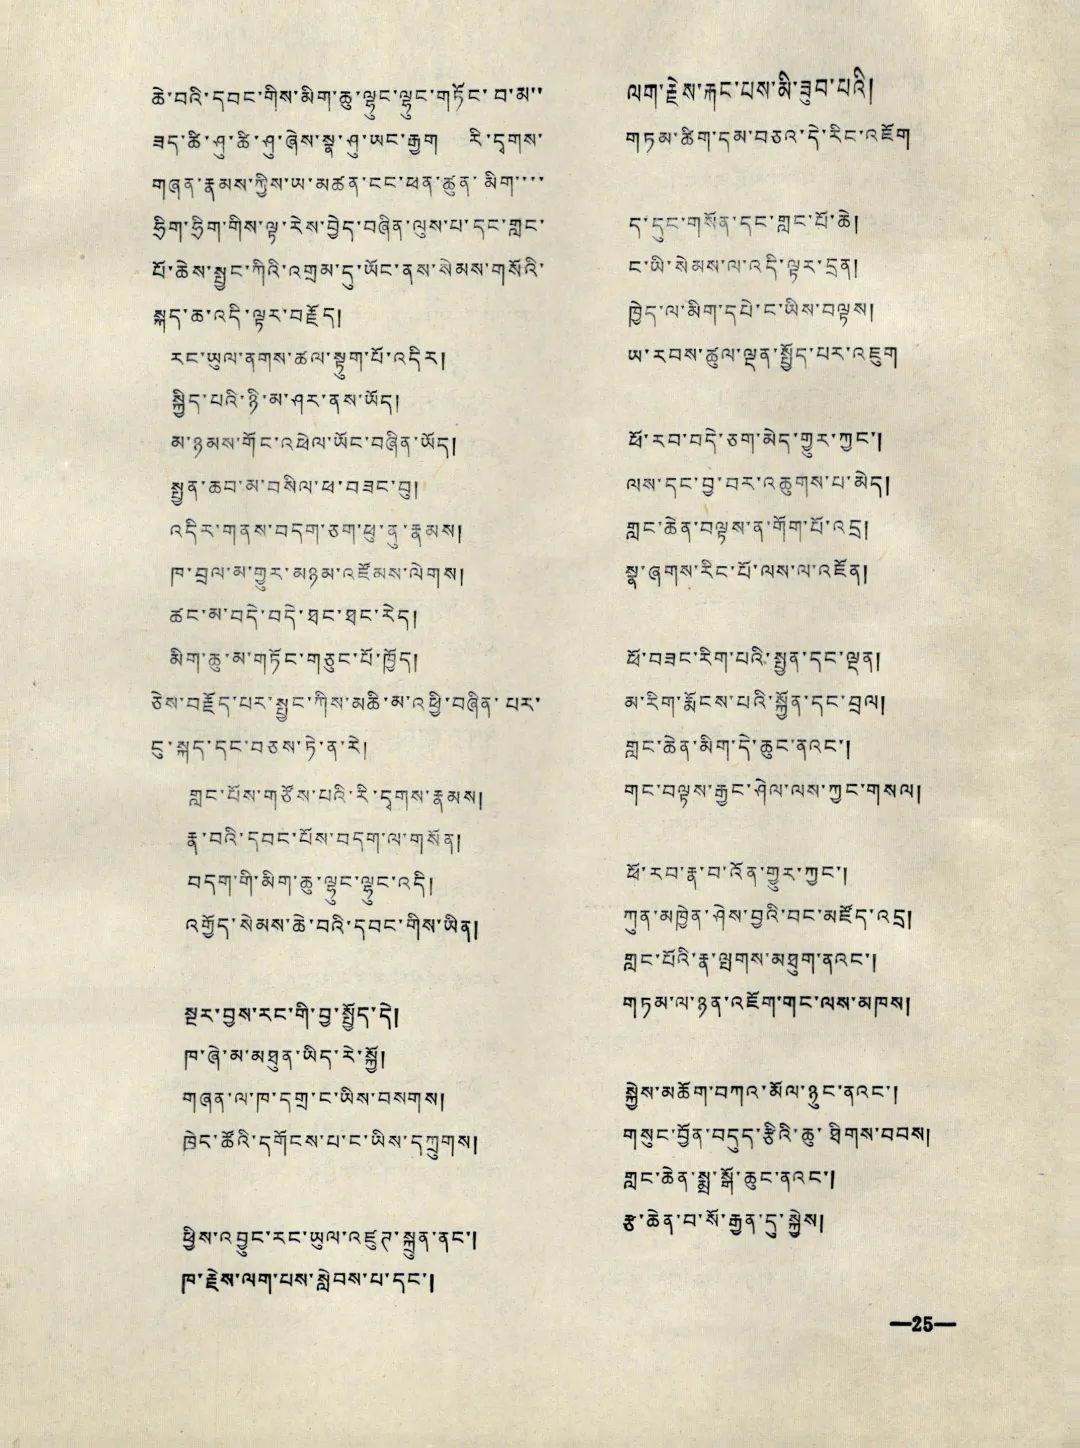 ཆེ་བའི་དབང་གིས་མིག་ཆུ་ལྷུང་ལྷུང་གཏོང་བ་མ་་
ཟད་ཚི་ཤུ་ཚི་ཤུ་ཞེས་སྣ་ཤུ་ཡང་རྒྱག རི་དྭགས་
གཞན་རྣམས་ཀྱིས་ཡ་མཚན་ངང་ཕན་ཚུན་མིག་་་་
ཧྲིག་ཧྲིག་གིས་ལྟ་རེས་བྱེད་བཞིན་ལུས་པ་དང་གླང་
པོ་ཆེས་སྤྱང་ཀིའི་འགྲམ་དུ་ཡོང་ནས་སེམས་གསོའི་
སྐད་ཆ་འདི་ལྟར་བརྗོད།
རང་ཡུལ་ནགས་ཚལ་སྟུག་པོ་འདིར།
སྐྱིད་པའི་ཉི་མ་ཤར་ནས་ཡོད།
མ་ཉམས་གོང་འཕེལ་ཡོང་བཞིན་ཡོད།
སྤྱན་ཆབ་མ་བསིལ་ཕ་བཟང་བུ།
འདིར་གནས་བདག་ཅག་ཕུ་ནུ་རྣམས།
ཁ་བྲལ་མ་གྱུར་མཉམ་འཛོམས་ལེགས།
ཚང་མ་བདེ་བདེ་ཐང་ཐང་རེད།
མིག་ཆུ་མ་གཏོང་གཅུང་པོ་ཁྱོད།
ཅེས་བརྗོད་པར་སྤྱང་ཀིས་མཆི་མ་འཕྱི་བཞིན་པར་
ངུ་སྐད་དང་བཅས་ཏེ་ན་རེ།
གླང་པོས་གཙོས་པའི་རི་དྭགས་རྣམས།
རྣ་བའི་དབང་པོས་བདག་ལ་གསོན།
བདག་གི་མིག་ཆུ་ལྷུང་ལྷུང་འདི།
འགྱོད་སེམས་ཆེ་བའི་དབང་གིས་ཡིན།
སྔར་བྱས་རང་གི་བྱ་སྤྱོད་དེ།
ཁ་ཞེ་མ་མཐུན་ཡིད་རེ་སྐྱོ།
གཞན་ལ་ཁ་དགྲ་ང་ཡིས་བསགས།
ཁྱེད་ཚོའི་དགོངས་པ་ང་ཡིས་དཀྲུགས།
ཕྱིས་འབྱུང་རང་ཡུལ་འཛུཊ་སྐྲུན་ནང་།
ཁ་རྗེས་ལག་པས་སླེབས་པ་དང་།
ལག་རྗེས་རྐང་པས་མི་ཟུབ་པའི།
གཏམ་ཚིག་དམ་བཅའ་དེ་རིང་འཇོག
ད་དུང་གསོན་དང་གླང་པོ་ཆེ།
ང་ཡི་སེམས་ལ་འདི་ལྟར་དྲན།
ཁྱེད་ལ་མིག་དཔེ་ང་ཡིས་བལྟས།
ཡ་རབས་ཚུལ་ལྡན་སྤྱོད་པར་འཇུག
ཕོ་རབ་བདེ་ཅག་མེད་གྱུར་ཀྱང་།
ལས་དང་བྱ་བར་འཆུགས་པ་མེད།
གླང་ཆེན་བལྟས་ན་གོག་པོ་འདྲ།
སྣ་ཞགས་རིང་པོ་ལས་ལ་འཇོན།
ཕོ་བཟང་རིག་པའི་སྤྱན་དང་ལྡན།
མ་རིག་རྨོངས་པའི་སྐྱོན་དང་བྲལ།
གླང་ཆེན་མིག་དེ་ཆུང་ནའང་།
གང་བལྟས་རྒྱང་ཤེལ་ལས་ཀྱང་གསལ།
ཕོ་རབ་རྣ་བ་འོན་གྱུར་ཀྱང་།
ཀུན་མཁྱེན་ཤེས་བྱའི་བང་མཛོད་འདྲ།
གླང་པོའི་རྣ་ལྤགས་མཐུག་ནའང་།
གཏམ་ལ་ཉན་འཇོག་གང་ལས་མཁས།
སྐྱེས་མཆོག་བཀའ་མོལ་ཉུང་ནའང་།
གསུང་བྱོན་བདུད་རྩིའི་ཆུ་ཐིགས་བབས།
གླང་ཆེན་སྨྲ་སྒོ་ཆུང་ནའང་།
རྩ་ཆེན་བ་སོ་རྒྱན་དུ་སྐྱེས།
—25—